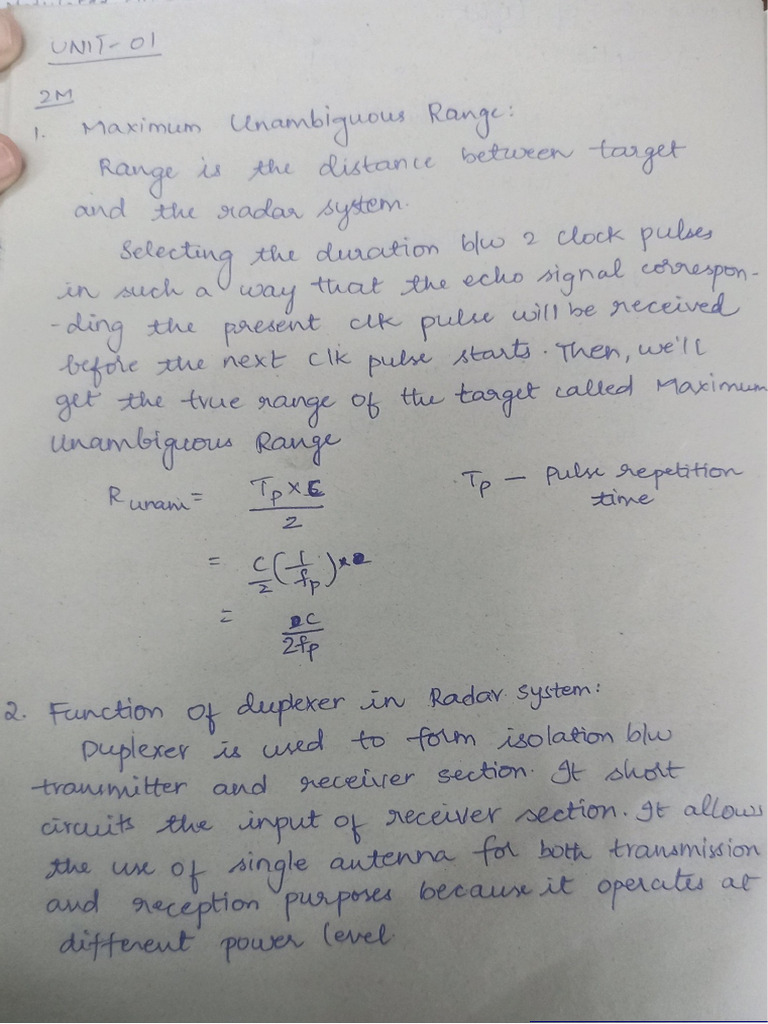 UNIT-01
2M
1. Maximum Unambiguous Range:
Range is the distance between target
and the radar system.
Selecting the duration b/w 2 clock pulses
in such a way that the echo signal correspon-
-ding the present clk pulse will be received
before the next clk pulse starts. Then, we'll
get the true range of the target called Maximum
Unambiguous Range
R unam = Tp × C / 2    Tp — Pulse repetition time
= C/2 (1/fp)
= C / 2fp
2. Function of duplexer in Radar system:
Duplexer is used to form isolation b/w
transmitter and receiver section. It short
circuits the input of receiver section. It allows
the use of single antenna for both transmission
and reception purposes because it operates at
different power level.